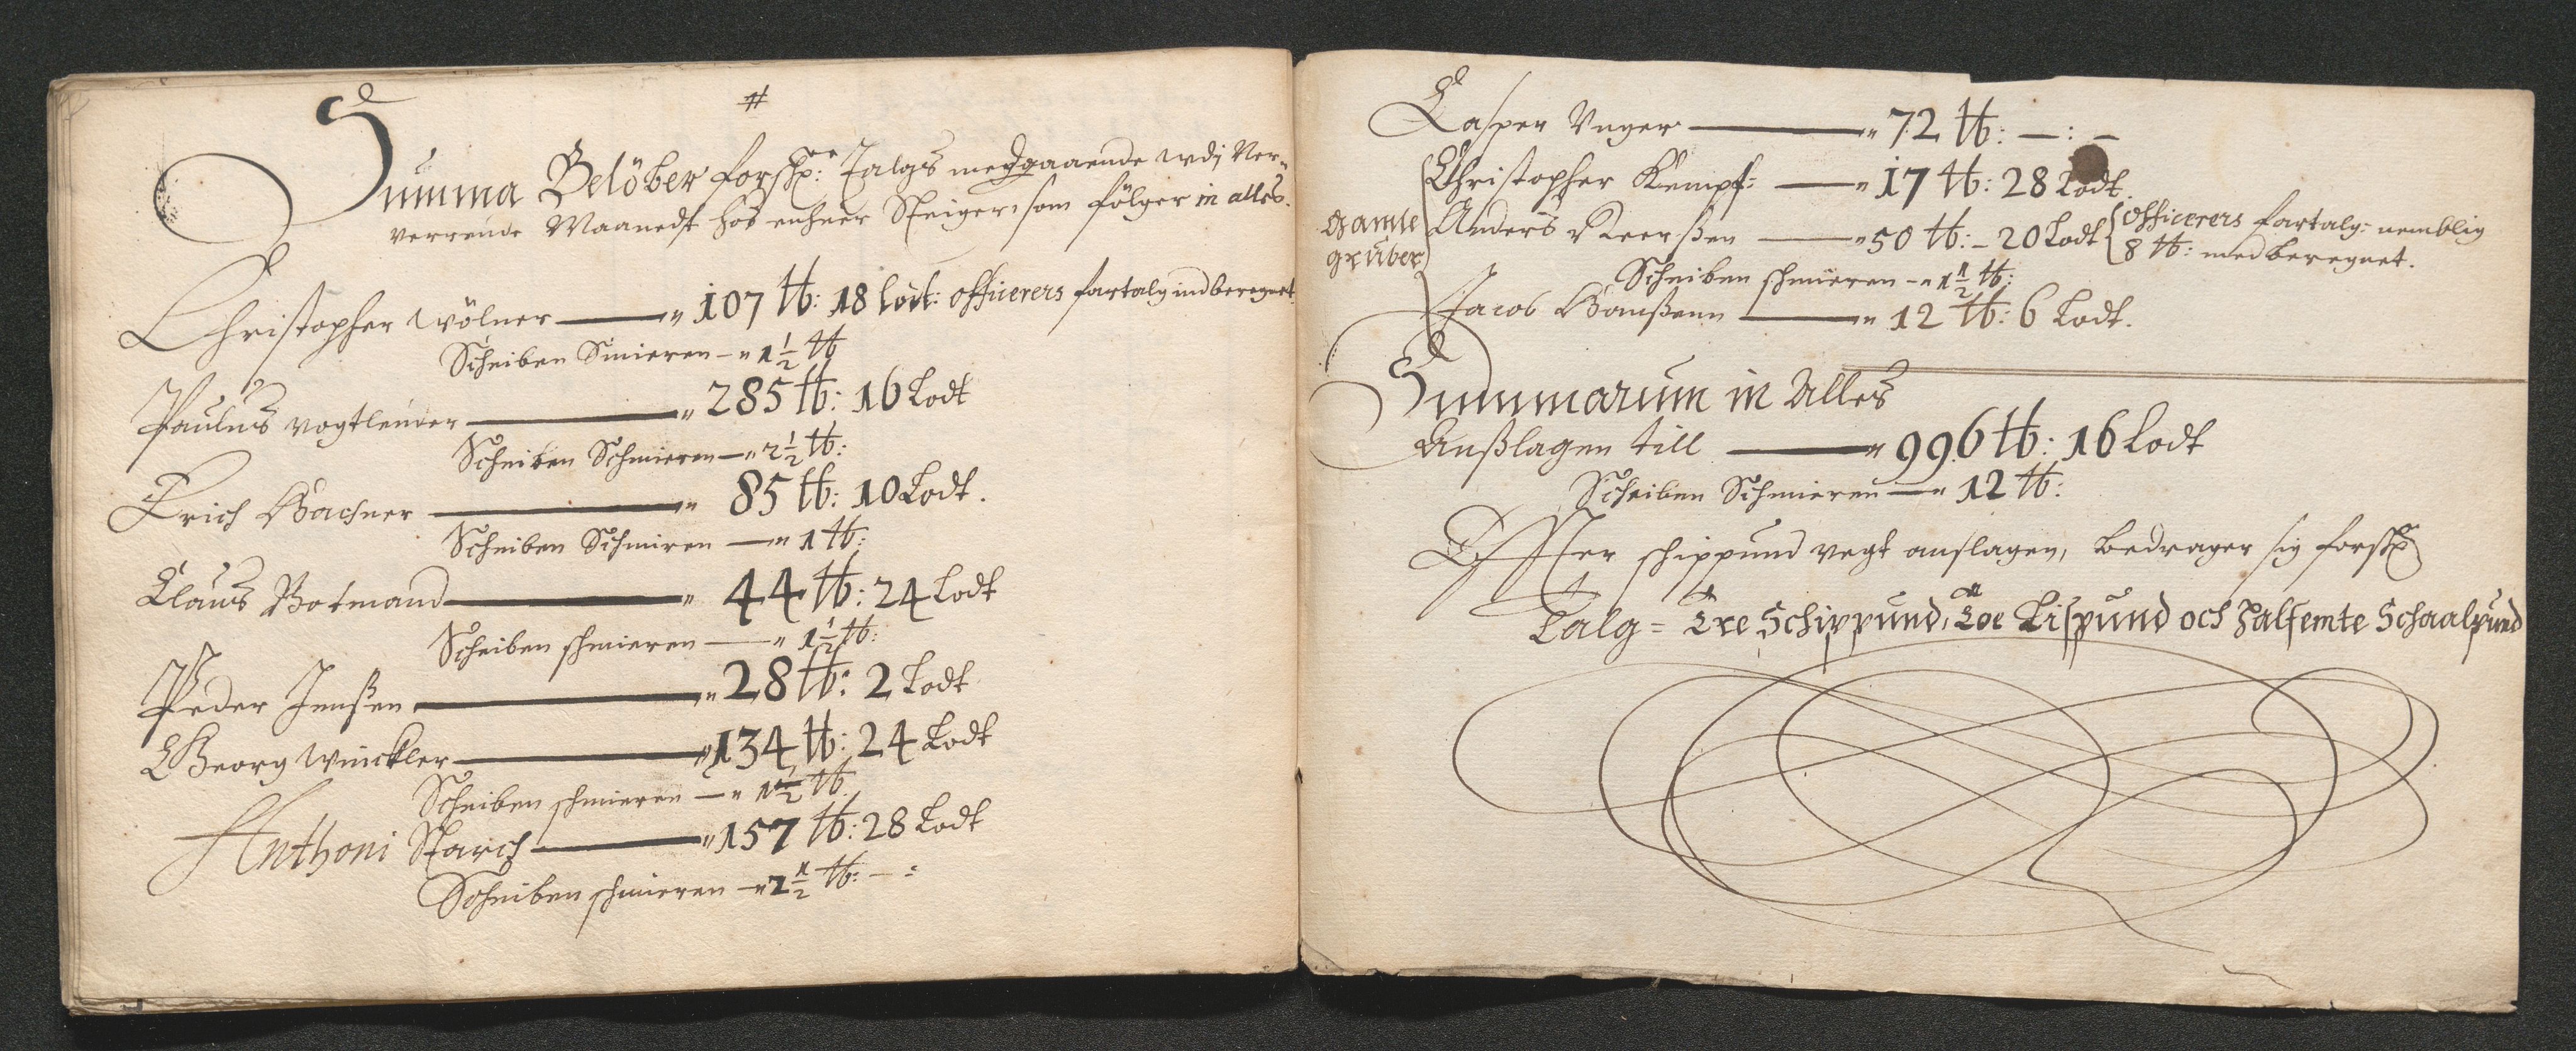 #
Summa Belöber forskr: Talgs medgaaende udj Ver-
verende Maanedt hos enhver Steiger, som fölger in alles.
Christopher Wölner — 107 ℔: 18 lodt: officerers fartalg indberegnet
Scheiben Smieren — 1½ ℔
Paulus Vogtlender — 285 ℔: 16 Lodt
Scheiben Schmieren — 2½ ℔:
Erich Gachner — 85 ℔: 10 Lodt.
Scheiben Schmiren — 1 ℔:
Claus Botmand — 44 ℔: 24 Lodt
Scheiben schmieren — 1½ ℔:
Peder Jenßen — 28 ℔: 2 Lodt
Georg Winckler — 134 ℔: 24 Lodt
Scheiben schmieren — 1½ ℔
Anthoni Starch — 157 ℔: 28 Lodt
Scheiben schmieren — 2½ ℔: — :
Casper Unger — 72 ℔: — : —
Gamle gruber
Christopher Kempf: — 17 ℔: 28 Lodt.
Anders Iverßen — 50 ℔: — 20 Lodt officerers fartalg: nemblig
8 ℔: med beregnet.
Scheiben schmieren — 1½ ℔:
Jacob Hanßenn — 12 ℔: 6 Lodt.
Summarum in Alles
Anßlagen till — 996 ℔: 16 Lodt
Scheiben Schmieren — 12 ℔:
Effter schippund vegt anslagen, bedrager sig forskr
Talg = Tre Schippund, Toe Lispund och Halfemte Schaalpund